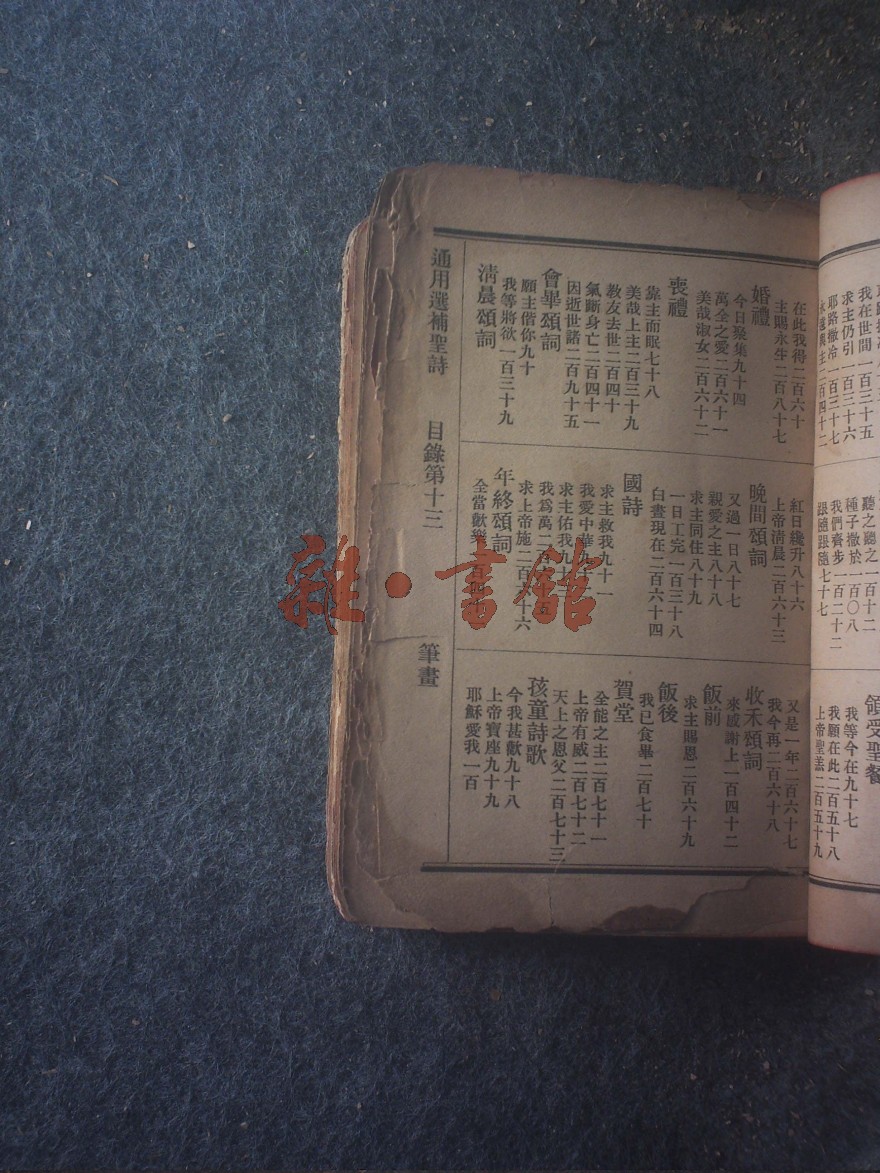 我在世間一百三十五
求主仍引一百三十六
耶路撒冷二百三十七
聽之聽之一百十二
種子撒於一百〇八
我們齊步一百二十二
跟隨跟隨七十七
領受聖餐
我等今在九十七
我願在此二百五十八
上帝聖羔二百五十九
在此我得二百六十
主賜永生二百八十七
婚禮
今日聚集九十四
萬全之愛二百六十一
美哉淑女二百六十二
喪禮
靠主而眠七十八
美哉上主二百三十九
教友去世二百四十
氣斷身亡二百四十一
因逝世諸二百九十五
會畢頌詞
願主偕你九十
我等將欲一百三十九
清晨頌詞
紅日纔升八十六
上帝清晨二百六十三
晚間頌詞
又過一日八十七
親愛之主八十八
求主同住八十九
一日工完一百三十八
白晝現在二百六十四
國詩
求主救我九十一
我愛中華九十二
求主佑我九十三
我爲萬二百
求上帝施二百六十六
年終頌詞
全當歡樂一百四十
又是一年二百六十七
我今再二百六十八
收禾頌詞
來感謝上一百四十二
飯前
求主賜恩二百六十九
飯後
我已食畢二百七十
賀堂
全能之主二百七十一
上帝有威二百七十二
天上之恩父二百七十三
孩童詩歌
今我甚歡九十八
上帝寶座九十九
耶穌愛我一百
通用選補聖詩 目錄第十三 筆畫
雜·書館